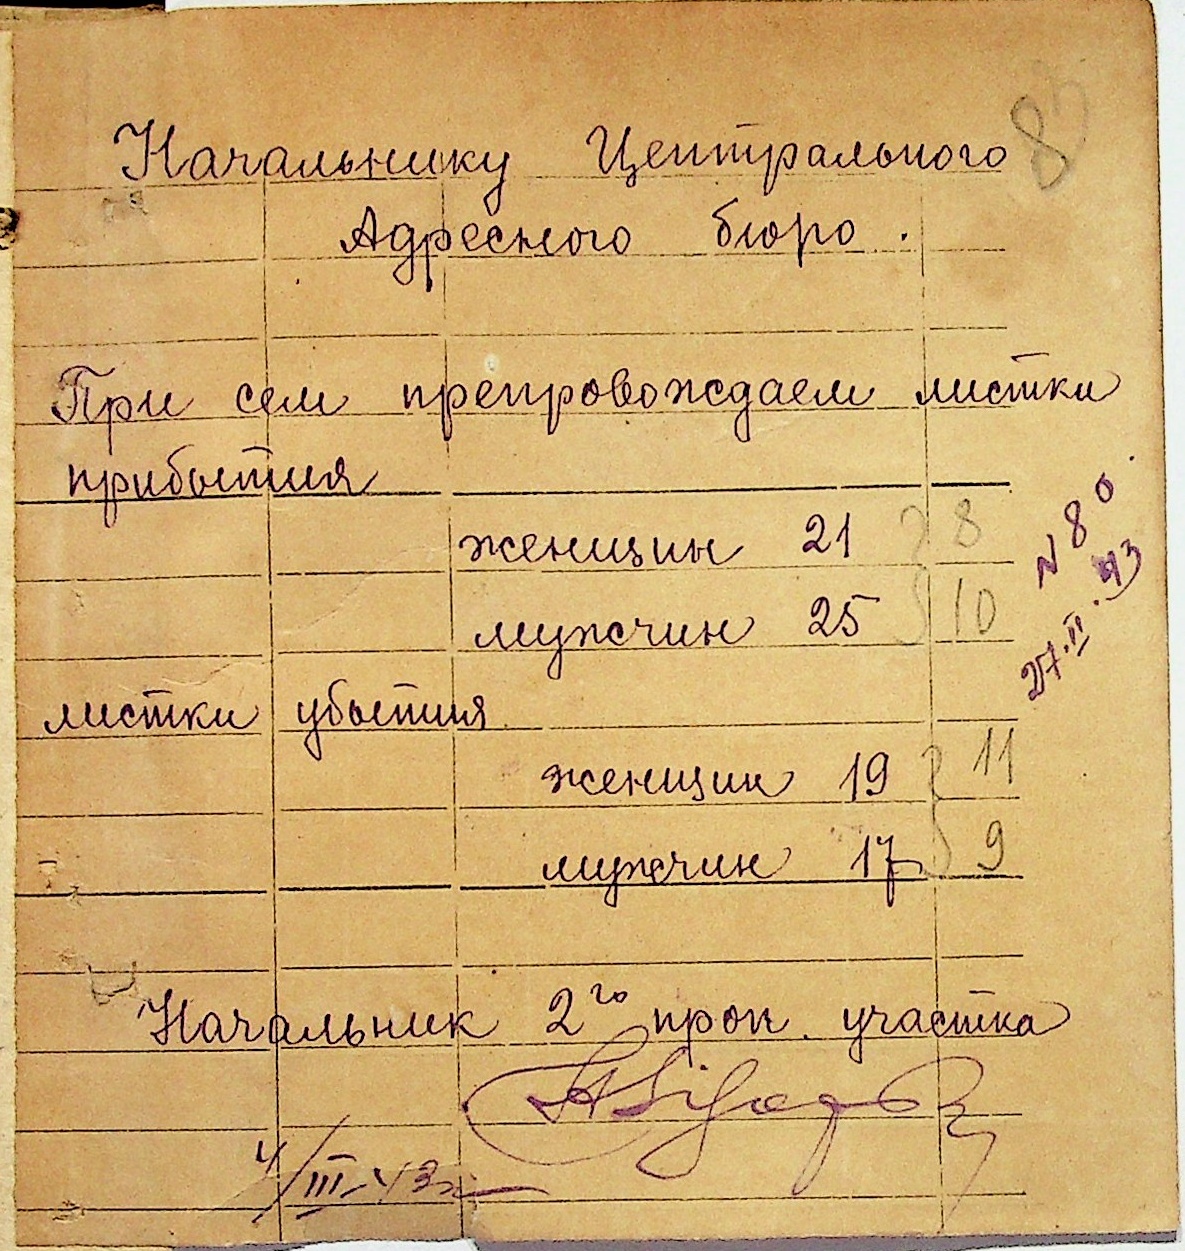 Начальнику Центрального
Адресного бюро.
При сем препровождаем листки
прибытия
женщины 21 8
мужчин 25 10
листки убытия
женщин 19 11
мужчин 17 9
N 80
27.II.43
Начальник 2го проп. участка
4/III-43г